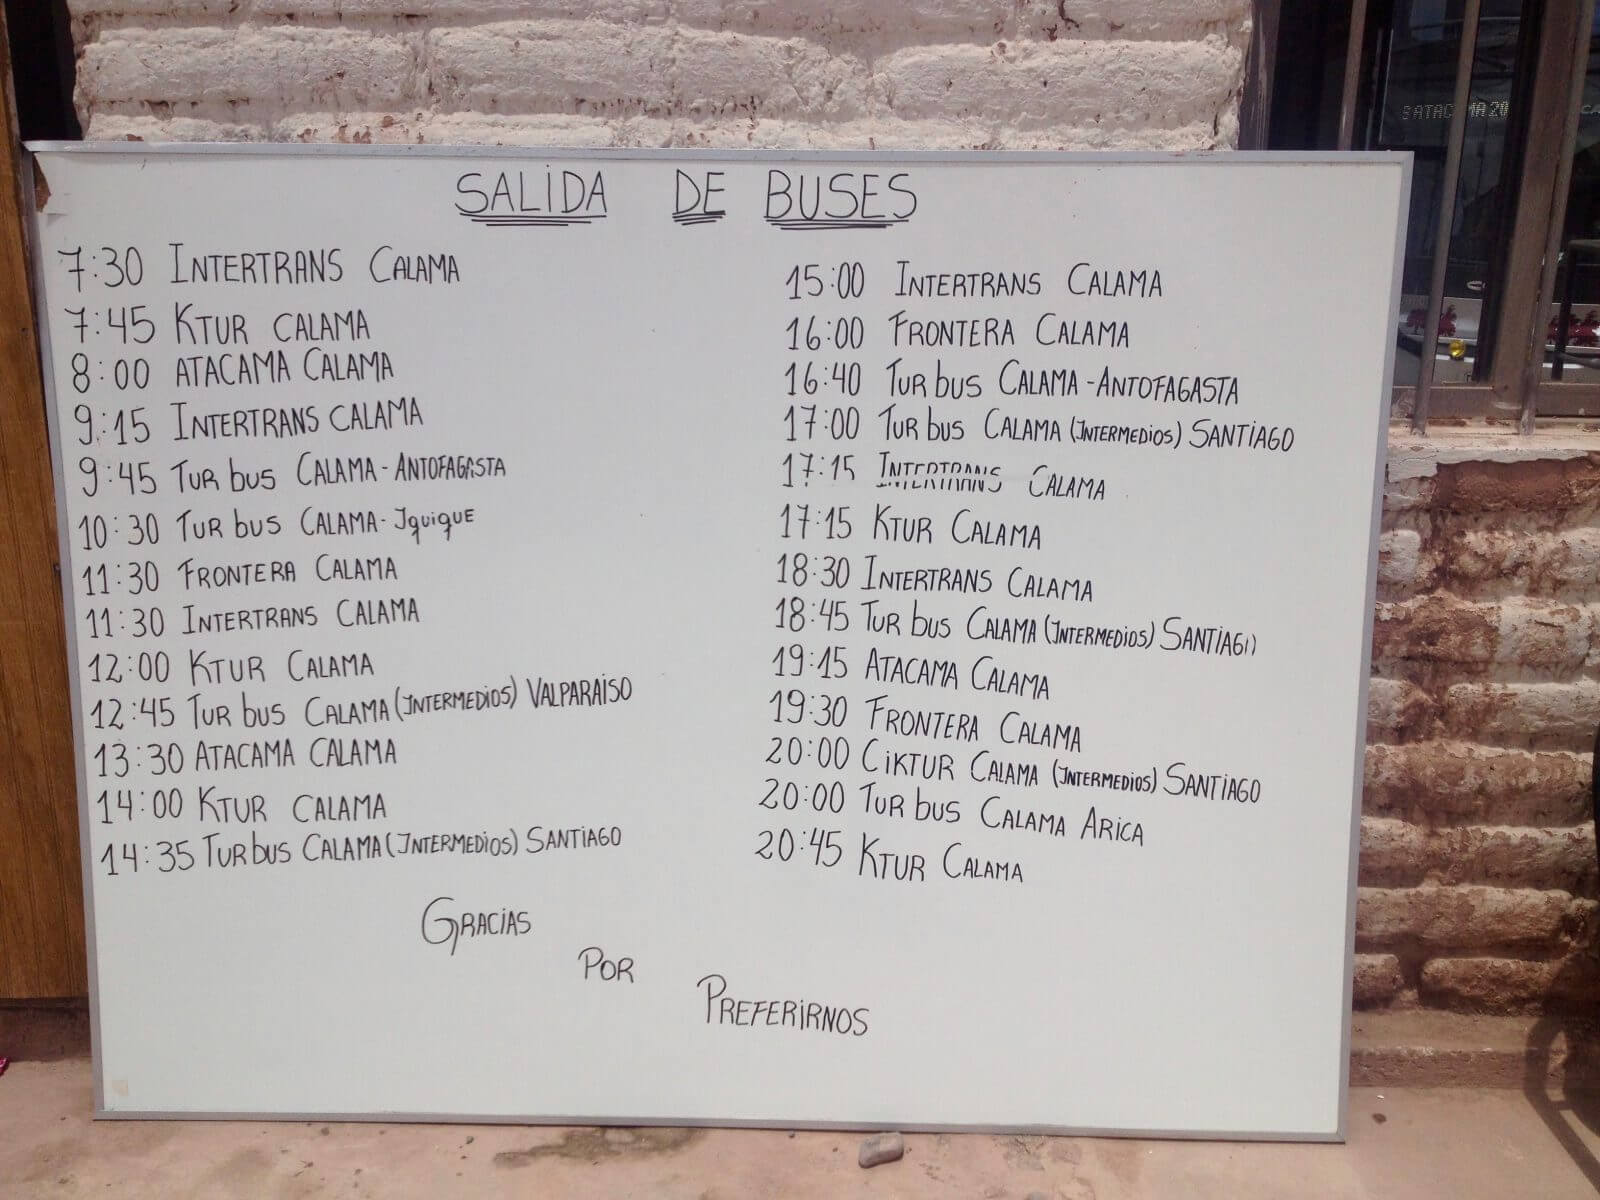 SALIDA DE BUSES
7:30 INTERTRANS CALAMA
7:45 KTUR CALAMA
8:00 ATACAMA CALAMA
9:15 INTERTRANS CALAMA
9:45 TUR bus CALAMA - ANTOFAGASTA
10:30 TUR bus CALAMA - Iquique
11:30 FRONTERA CALAMA
11:30 INTERTRANS CALAMA
12:00 KTUR CALAMA
12:45 TUR bus CALAMA (INTERMEDIOS) VALPARAISO
13:30 ATACAMA CALAMA
14:00 KTUR CALAMA
14:35 TUR bus CALAMA (INTERMEDIOS) SANTIAGO
15:00 INTERTRANS CALAMA
16:00 FRONTERA CALAMA
16:40 TUR bus CALAMA - ANTOFAGASTA
17:00 TUR bus CALAMA (INTERMEDIOS) SANTIAGO
17:15 INTERTRANS CALAMA
17:15 KTUR CALAMA
18:30 INTERTRANS CALAMA
18:45 TUR bus CALAMA (INTERMEDIOS) SANTIAGO
19:15 ATACAMA CALAMA
19:30 FRONTERA CALAMA
20:00 CIKTUR CALAMA (INTERMEDIOS) SANTIAGO
20:00 TUR bus CALAMA ARICA
20:45 KTUR CALAMA
GRACIAS
POR
PREFERIRNOS